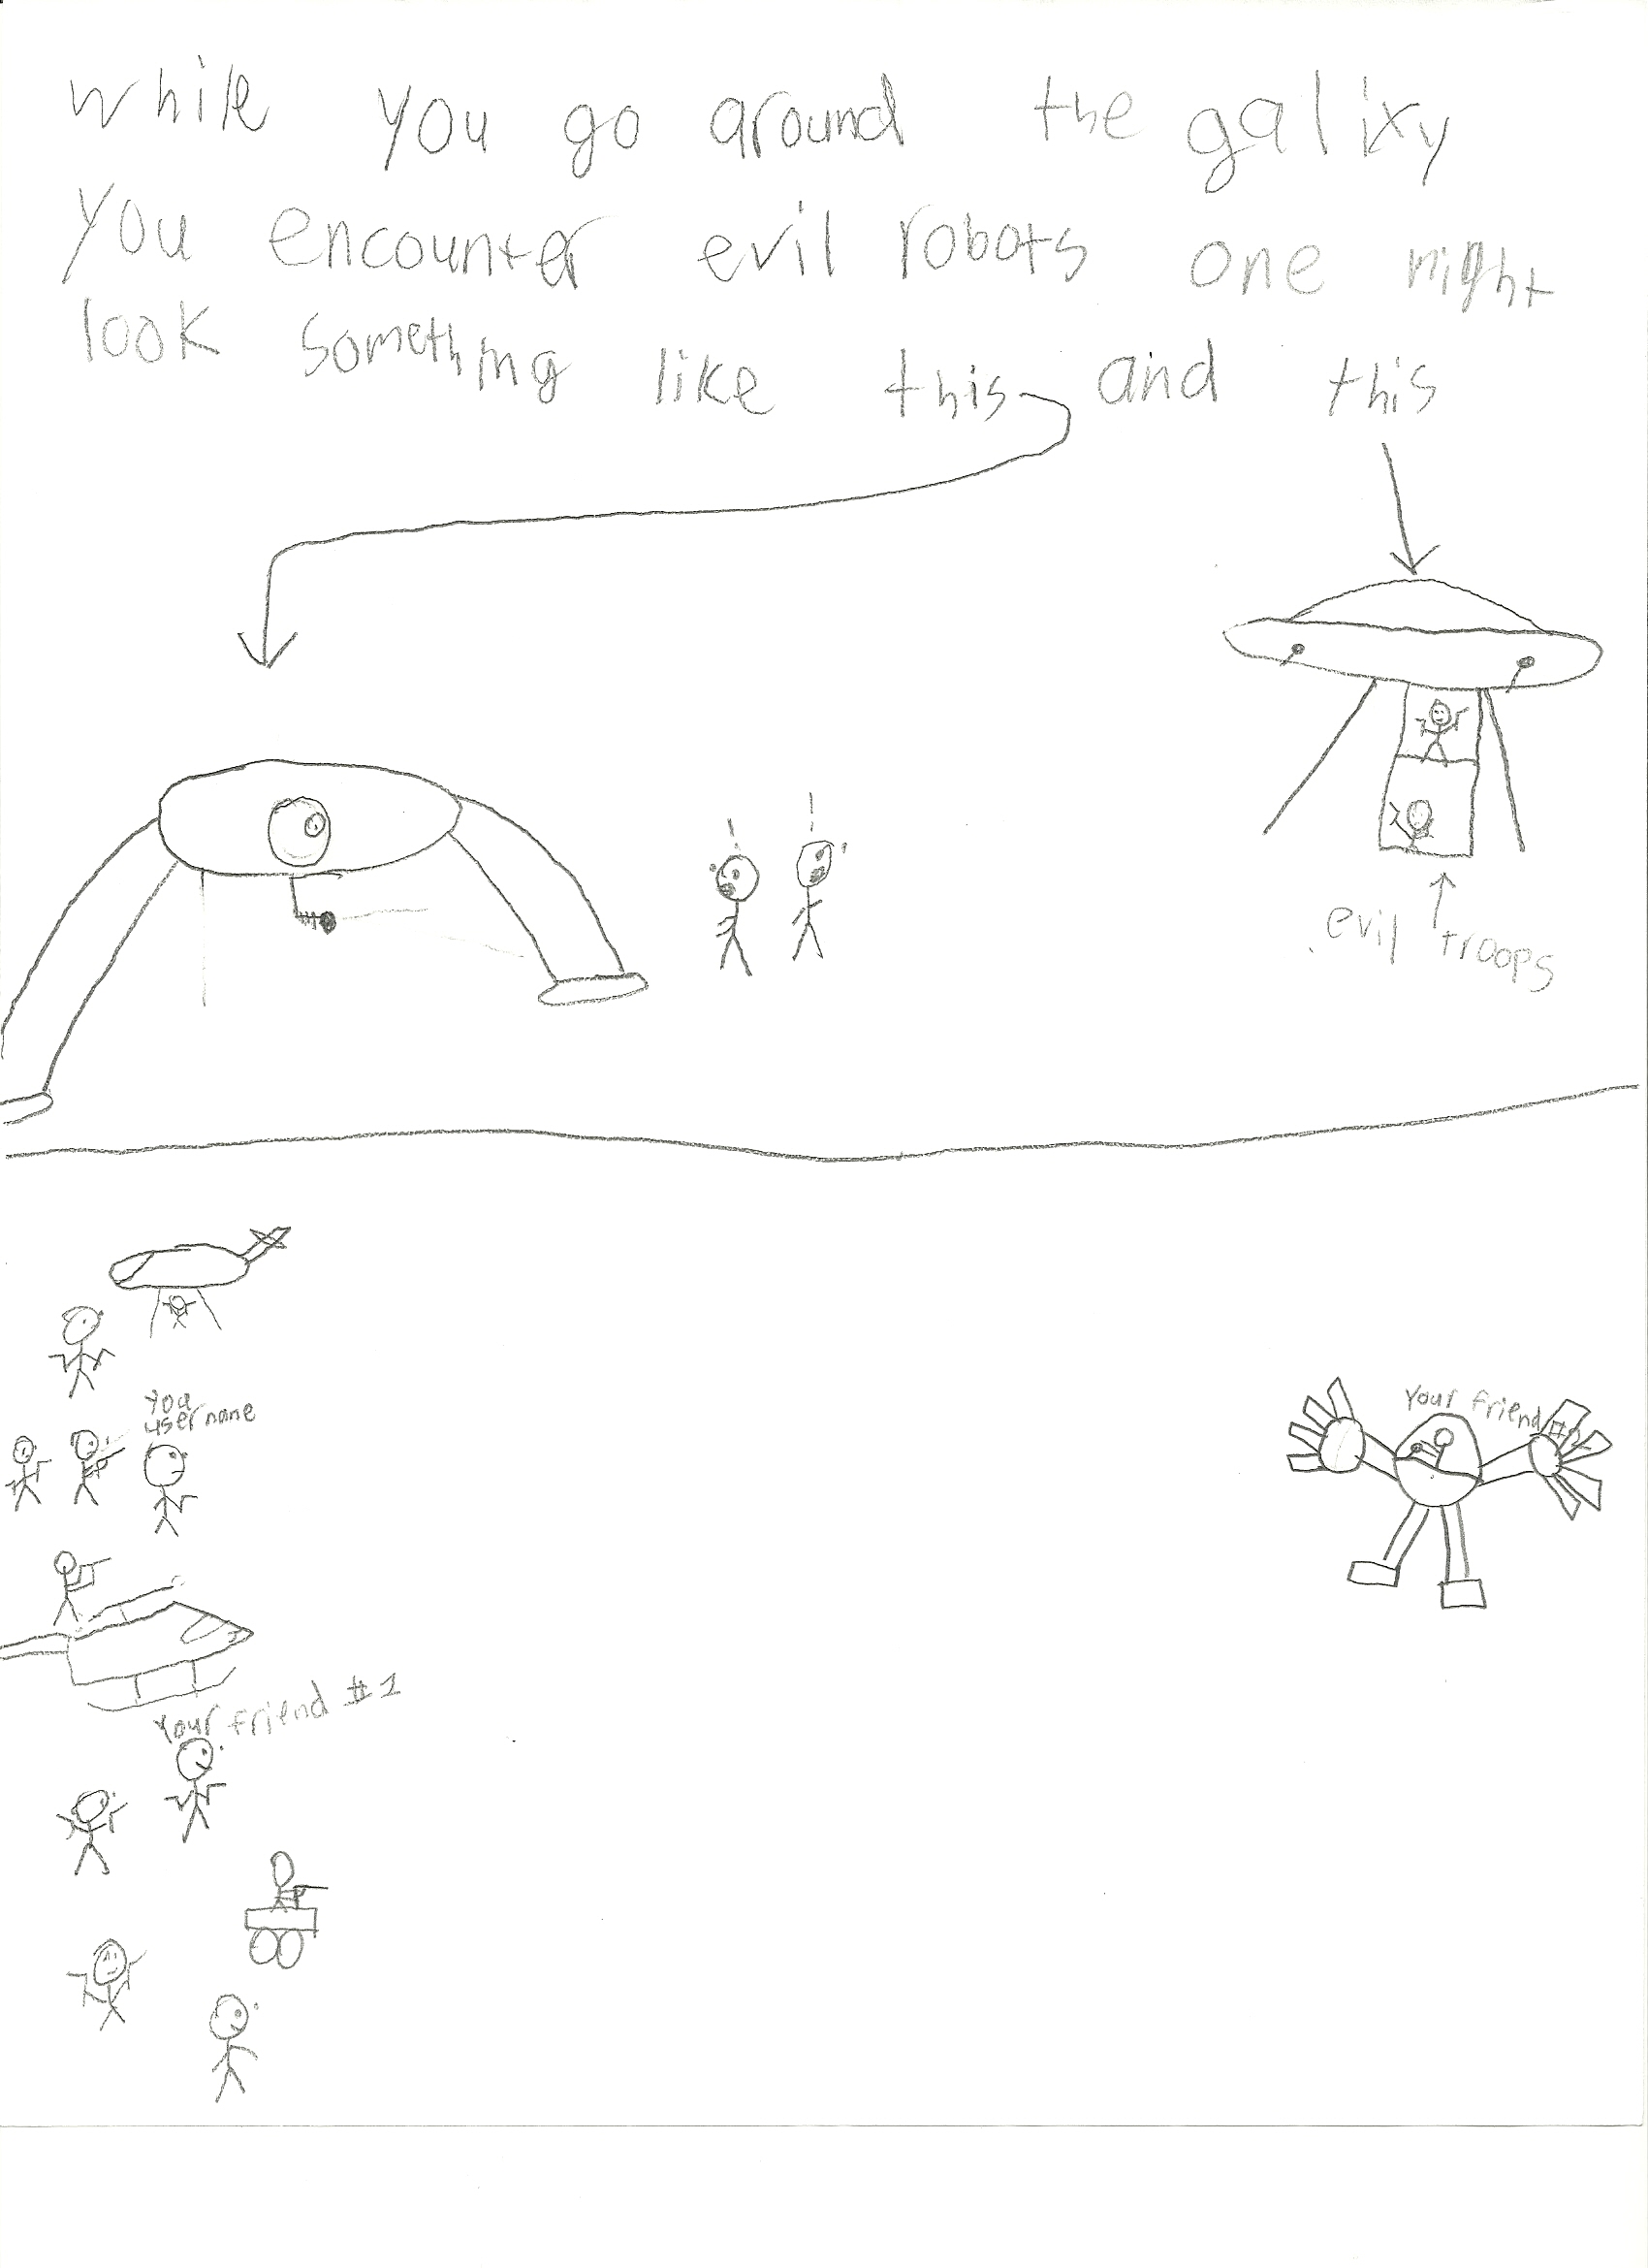 while you go around the galixy
you encounter evil robots one might
look something like this and this
evil troops
you
username
your friend #2
your friend #1